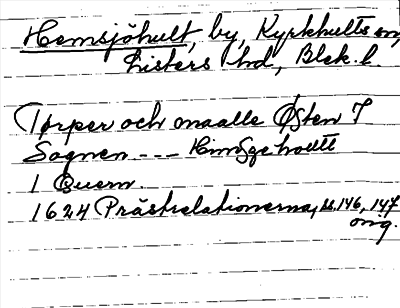 Hemsjöhult, by, Kyrkhults sn,
Listers hd, Blek. l.
Tørper och maalle Østen I
Sognen --- Himssgehoultt
1 Quern.
1624 Prästrelationerna, ss. 146, 147
orig.